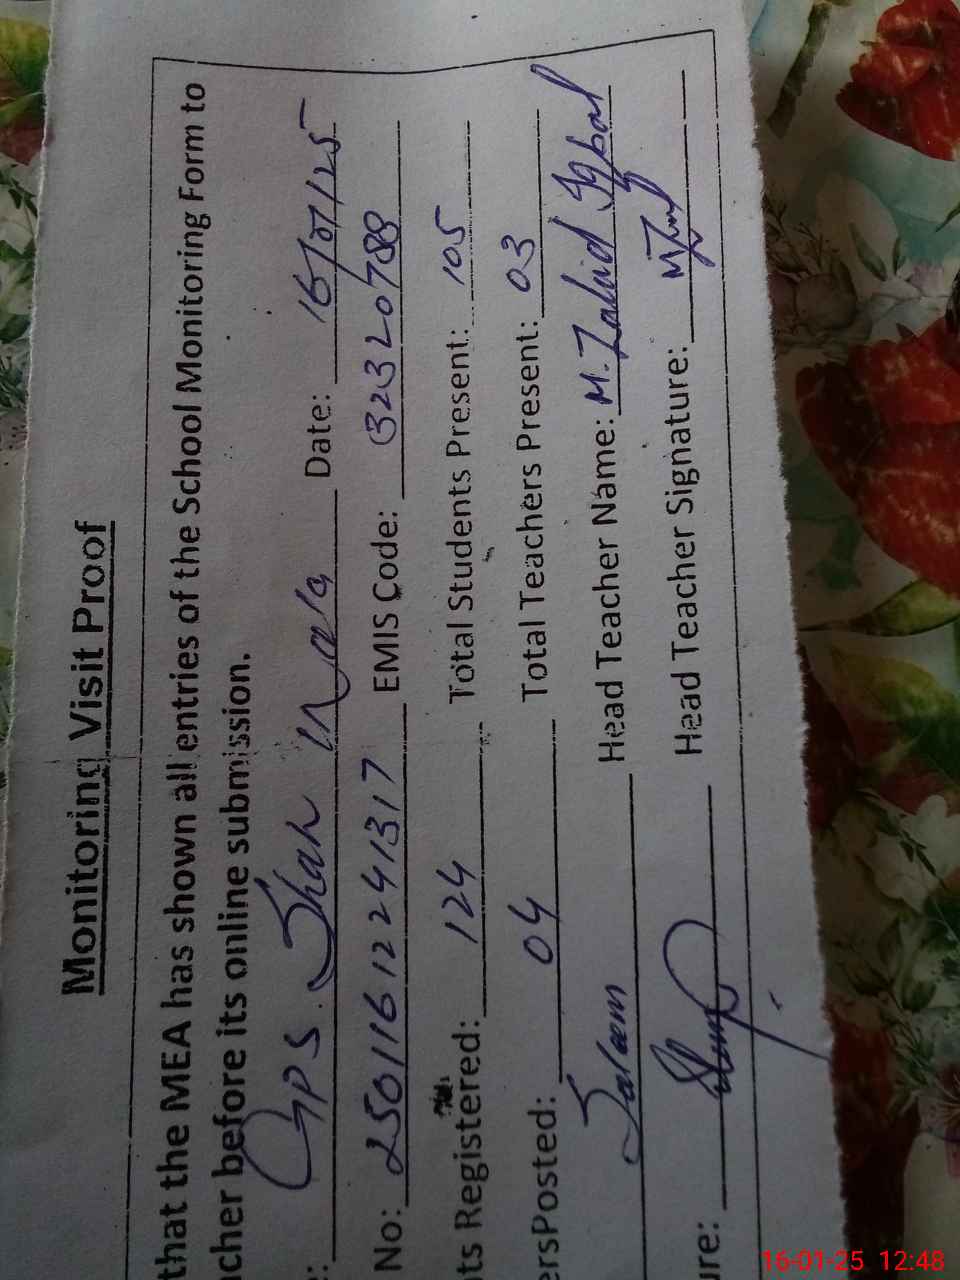 Monitoring Visit Proof
that the MEA has shown all entries of the School Monitoring Form to
cher before its online submission.
e: GPS Shah wala Date: 16/01/25
No: 25011612241317 EMIS Code: 32320788
ts Registered: 124 Total Students Present: 105
ersPosted: 04 Total Teachers Present: 03
Saleem Head Teacher Name: M. Zahid Iqbal
ure: Head Teacher Signature:
16-01-25 12:48